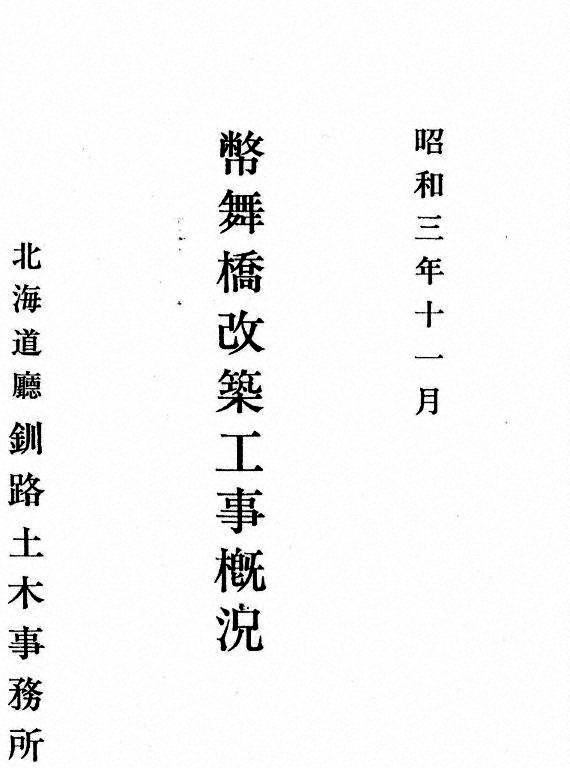 昭和三年十一月
幣舞橋改築工事概況
北海道廳釧路土木事務所